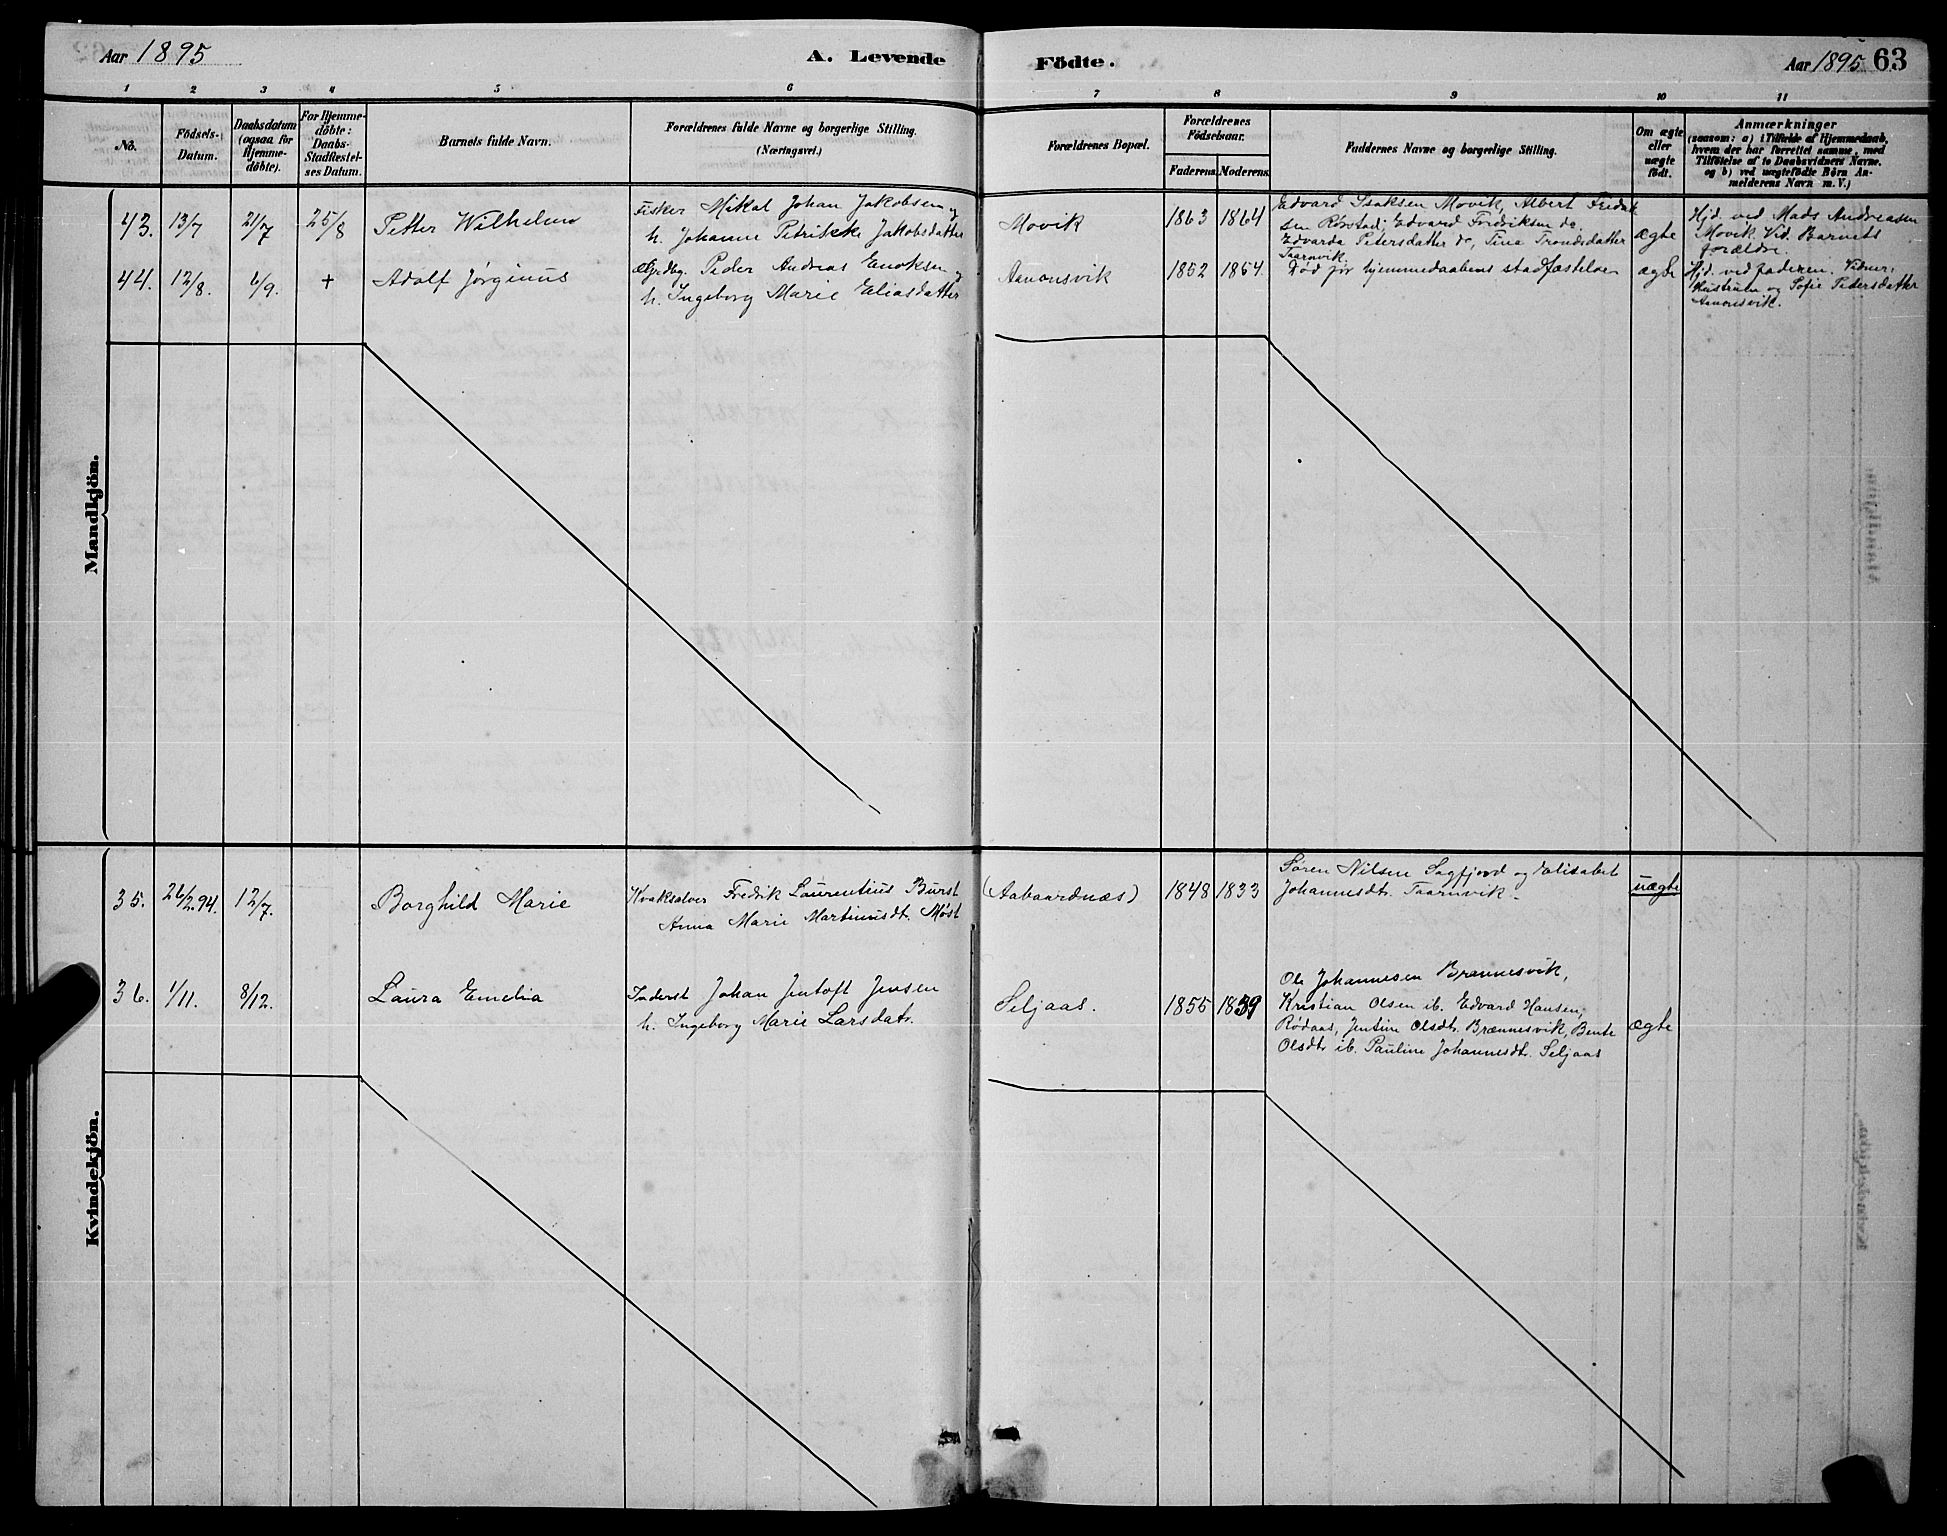 Aar 1895 A. Levende Födte. Aar 1895 63
1 2 3 4 5 6 7 8 9 10 11
No.
Födsels-
Datum.
Daabsdatum
(ogsaa for
Hjemme-
döbte).
For Hjemme-
döbte:
Daabs-
Stadfæstel-
ses Datum.
Barnets fulde Navn.
Forældrenes fulde Navne og borgerlige Stilling.
(Næringsvei.)
Forældrenes Bopæl.
Forældrenes
Födselsaar.
Faderens. Moderens.
Faddernes Navne og borgerlige Stilling.
Om ægte
eller
uægte
födt.
Anmærkninger
(saasom: a) i Tilfælde af Hjemmedaab,
hvem der har forrettet samme, med
Tilföielse af to Daabsvidners Navne.
og b) ved uægtefödte Börn An-
melderens Navn m. V.)
Mandkjön.
43. 13/7 21/7 25/8 Petter Wilhelm
Fisker Mikal Johan Jakobsen og
h. Johanne Petrikke Jakobsdatter
Movik 1863 1864
Edvard Isaksen Movik, Albert Fredrik
sen Róvstad, Edvard Fredriksen do,
Edvarda Petersdatter do, Tina Trondsdatter
Taarnvik.
ægte
Hjd. ved Mads Andreasen
Movik. Vid. Barnets
forældre.
44. 12/8. 6/9. + Adolf Jørginus
Peder Andreas Enoksen og
h. Ingeborg Marie Eliasdatter
Aanonsvik 1852 1854.
Død før hjemmedaabens stadfæstelse
ægte
Hjd. ved faderen. Vidner:
Hustruen og Sofie Pedersdatter
Aanonsvik.
Kvindekjön.
35. 26/2.94. 12/7. Borghild Marie
Kvaksalver Fredrik Laurentius Burst
Anna Marie Martinusdt. Møst
(Aabaardnæs) 1848 1833
Søren Nilsen Sagfjord og Elisabet
Johannesdtr. Taarnvik.
uægte
36. 1/11. 8/12. Laura Emelia
Inderst Johan Jentoft Jensen
h. Ingeborg Marie Larsdatr.
Seljaas. 1855 1859
Ole Johannesen Brænnesvik,
Kristian Olsen ib. Edvard Hansen,
Rødaas, Jentine Olsdtr. Brænnesvik, Bente
Olsdtr ib. Pauline Johannesdtr. Seljaas
ægte